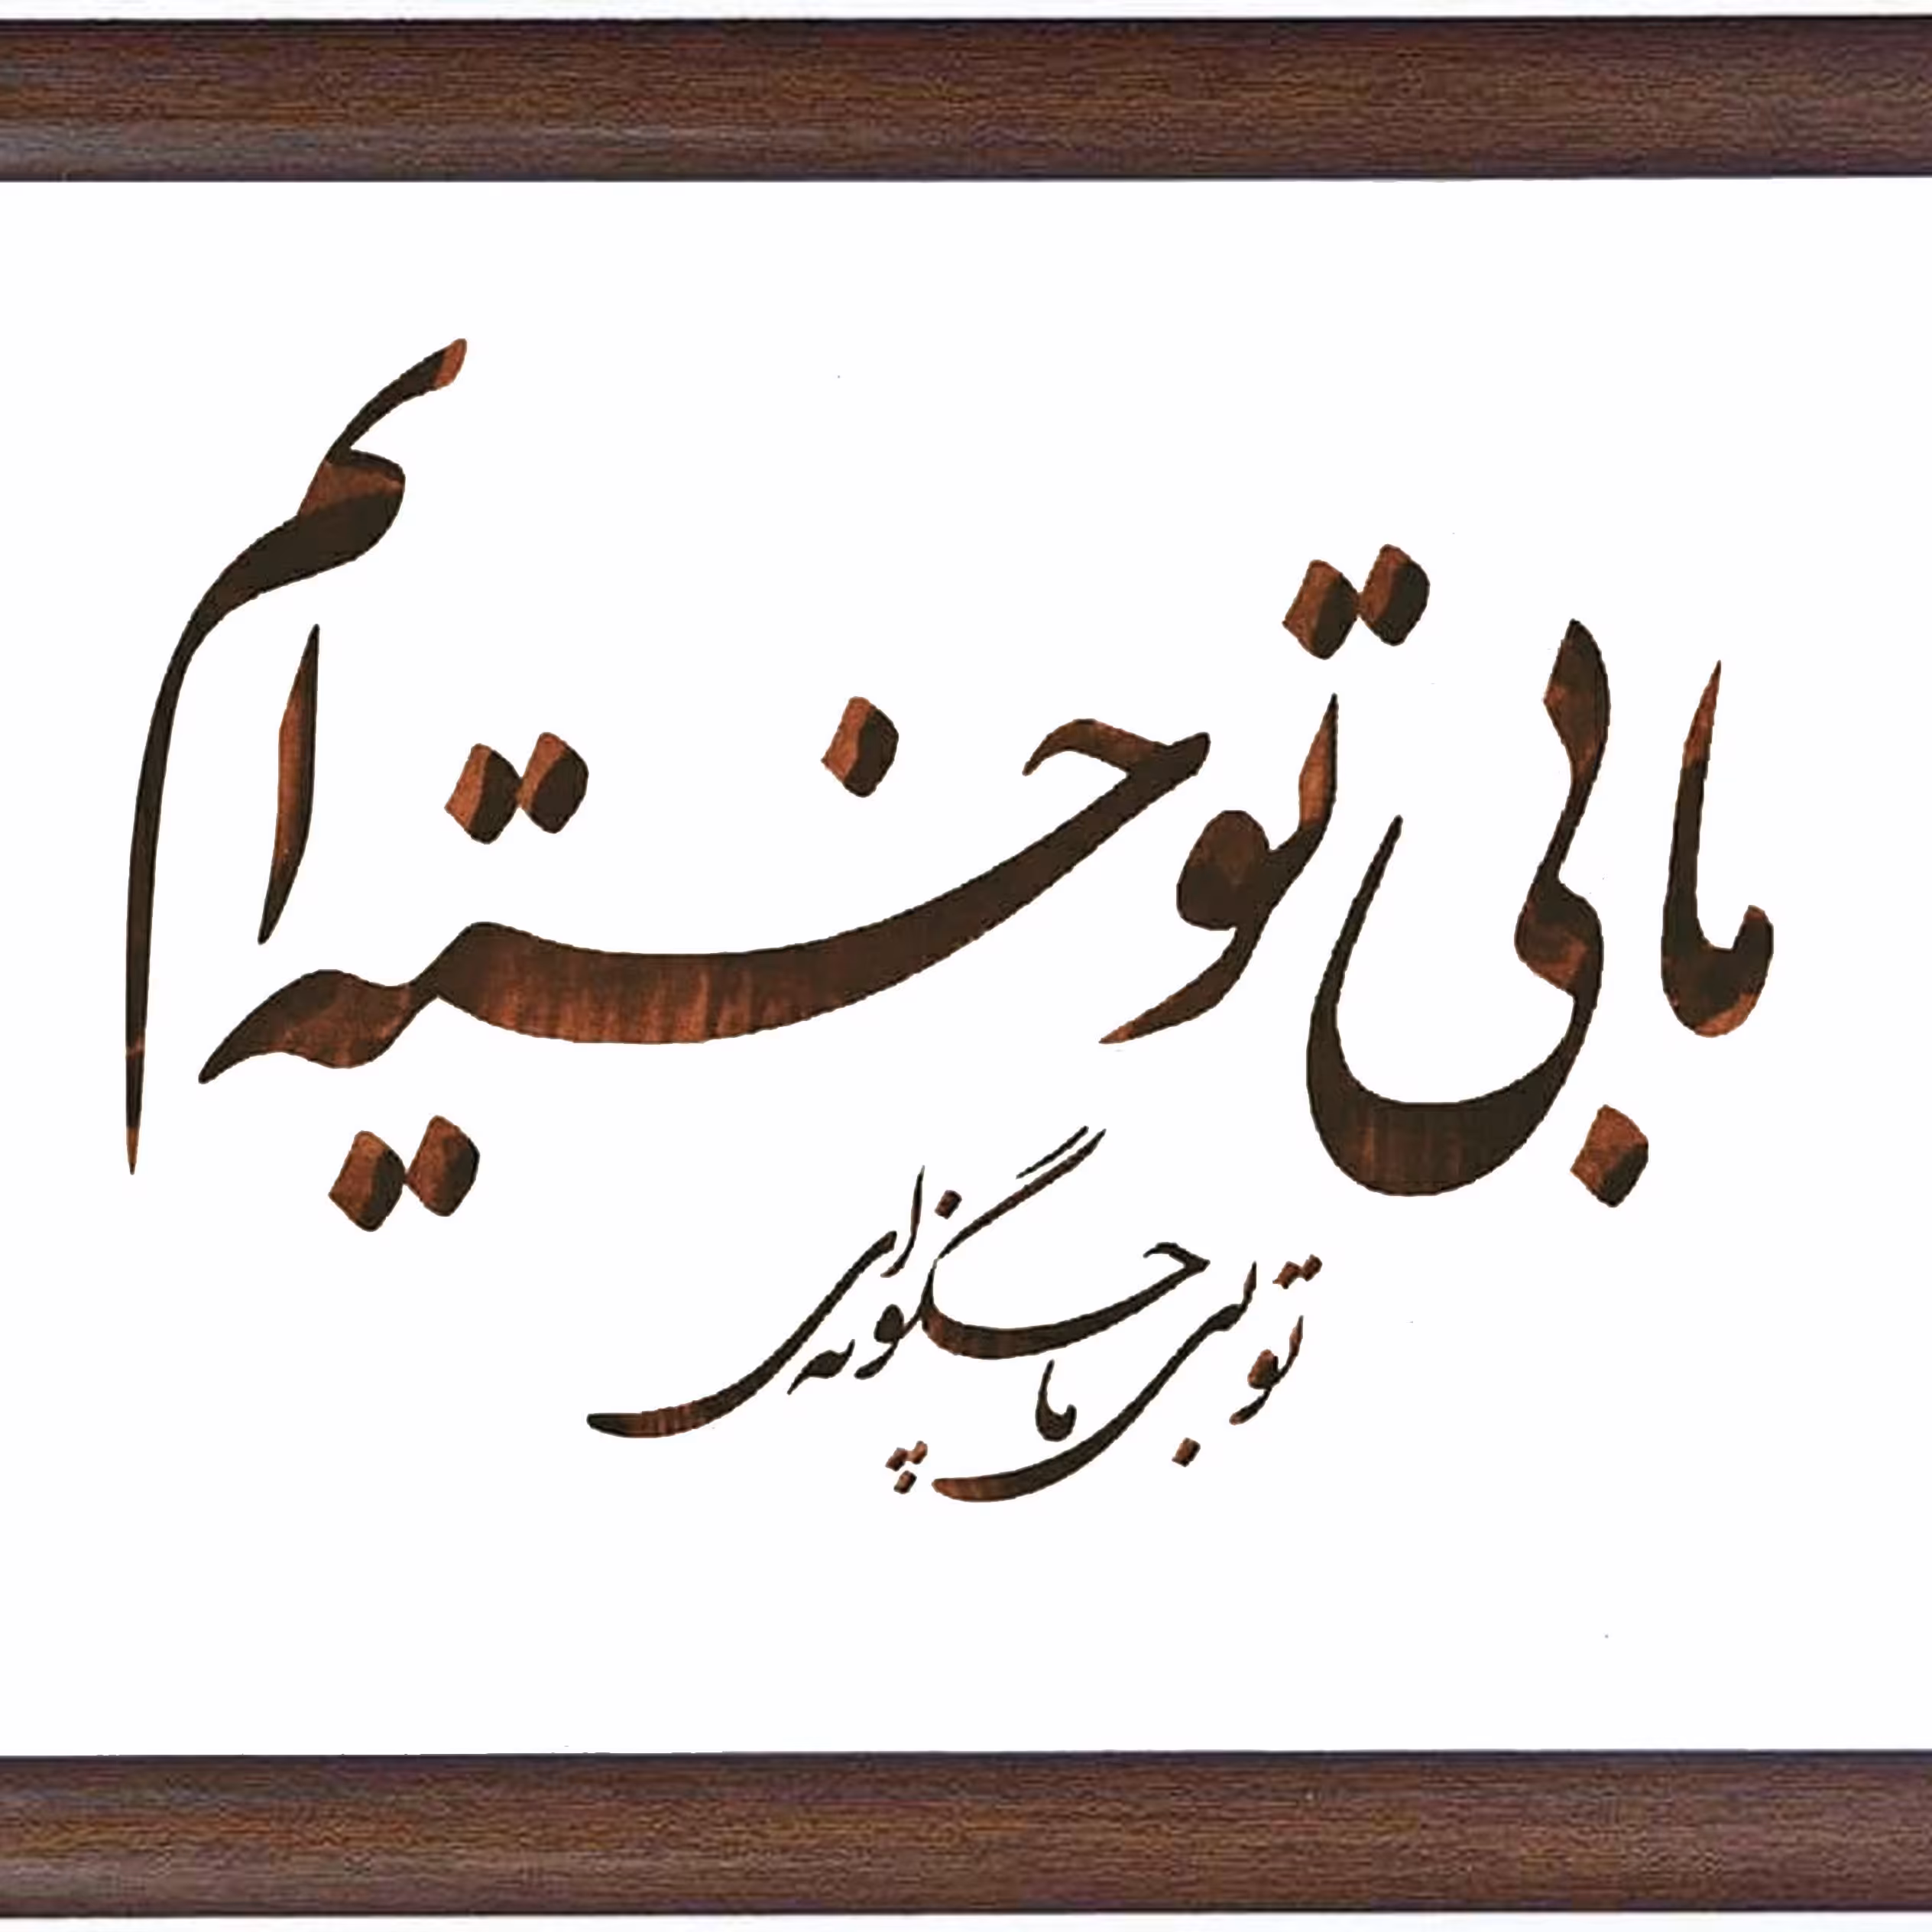 ما بی تو خسته ایم
تو بی ما چگونه ای